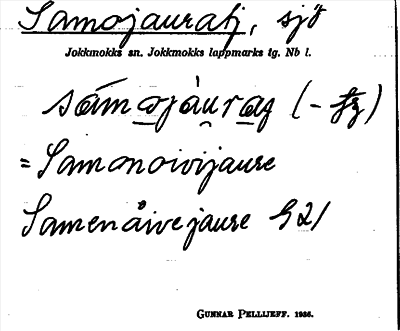 Samojauratj, sjö
Jokkmokks sn. Jokkmokks lappmarks tg. Nb l.
sámǝjàurag (-
= Samonoivijaure
Samenåive jaure G21
GUNNAR PELLIJEFF. 1936.